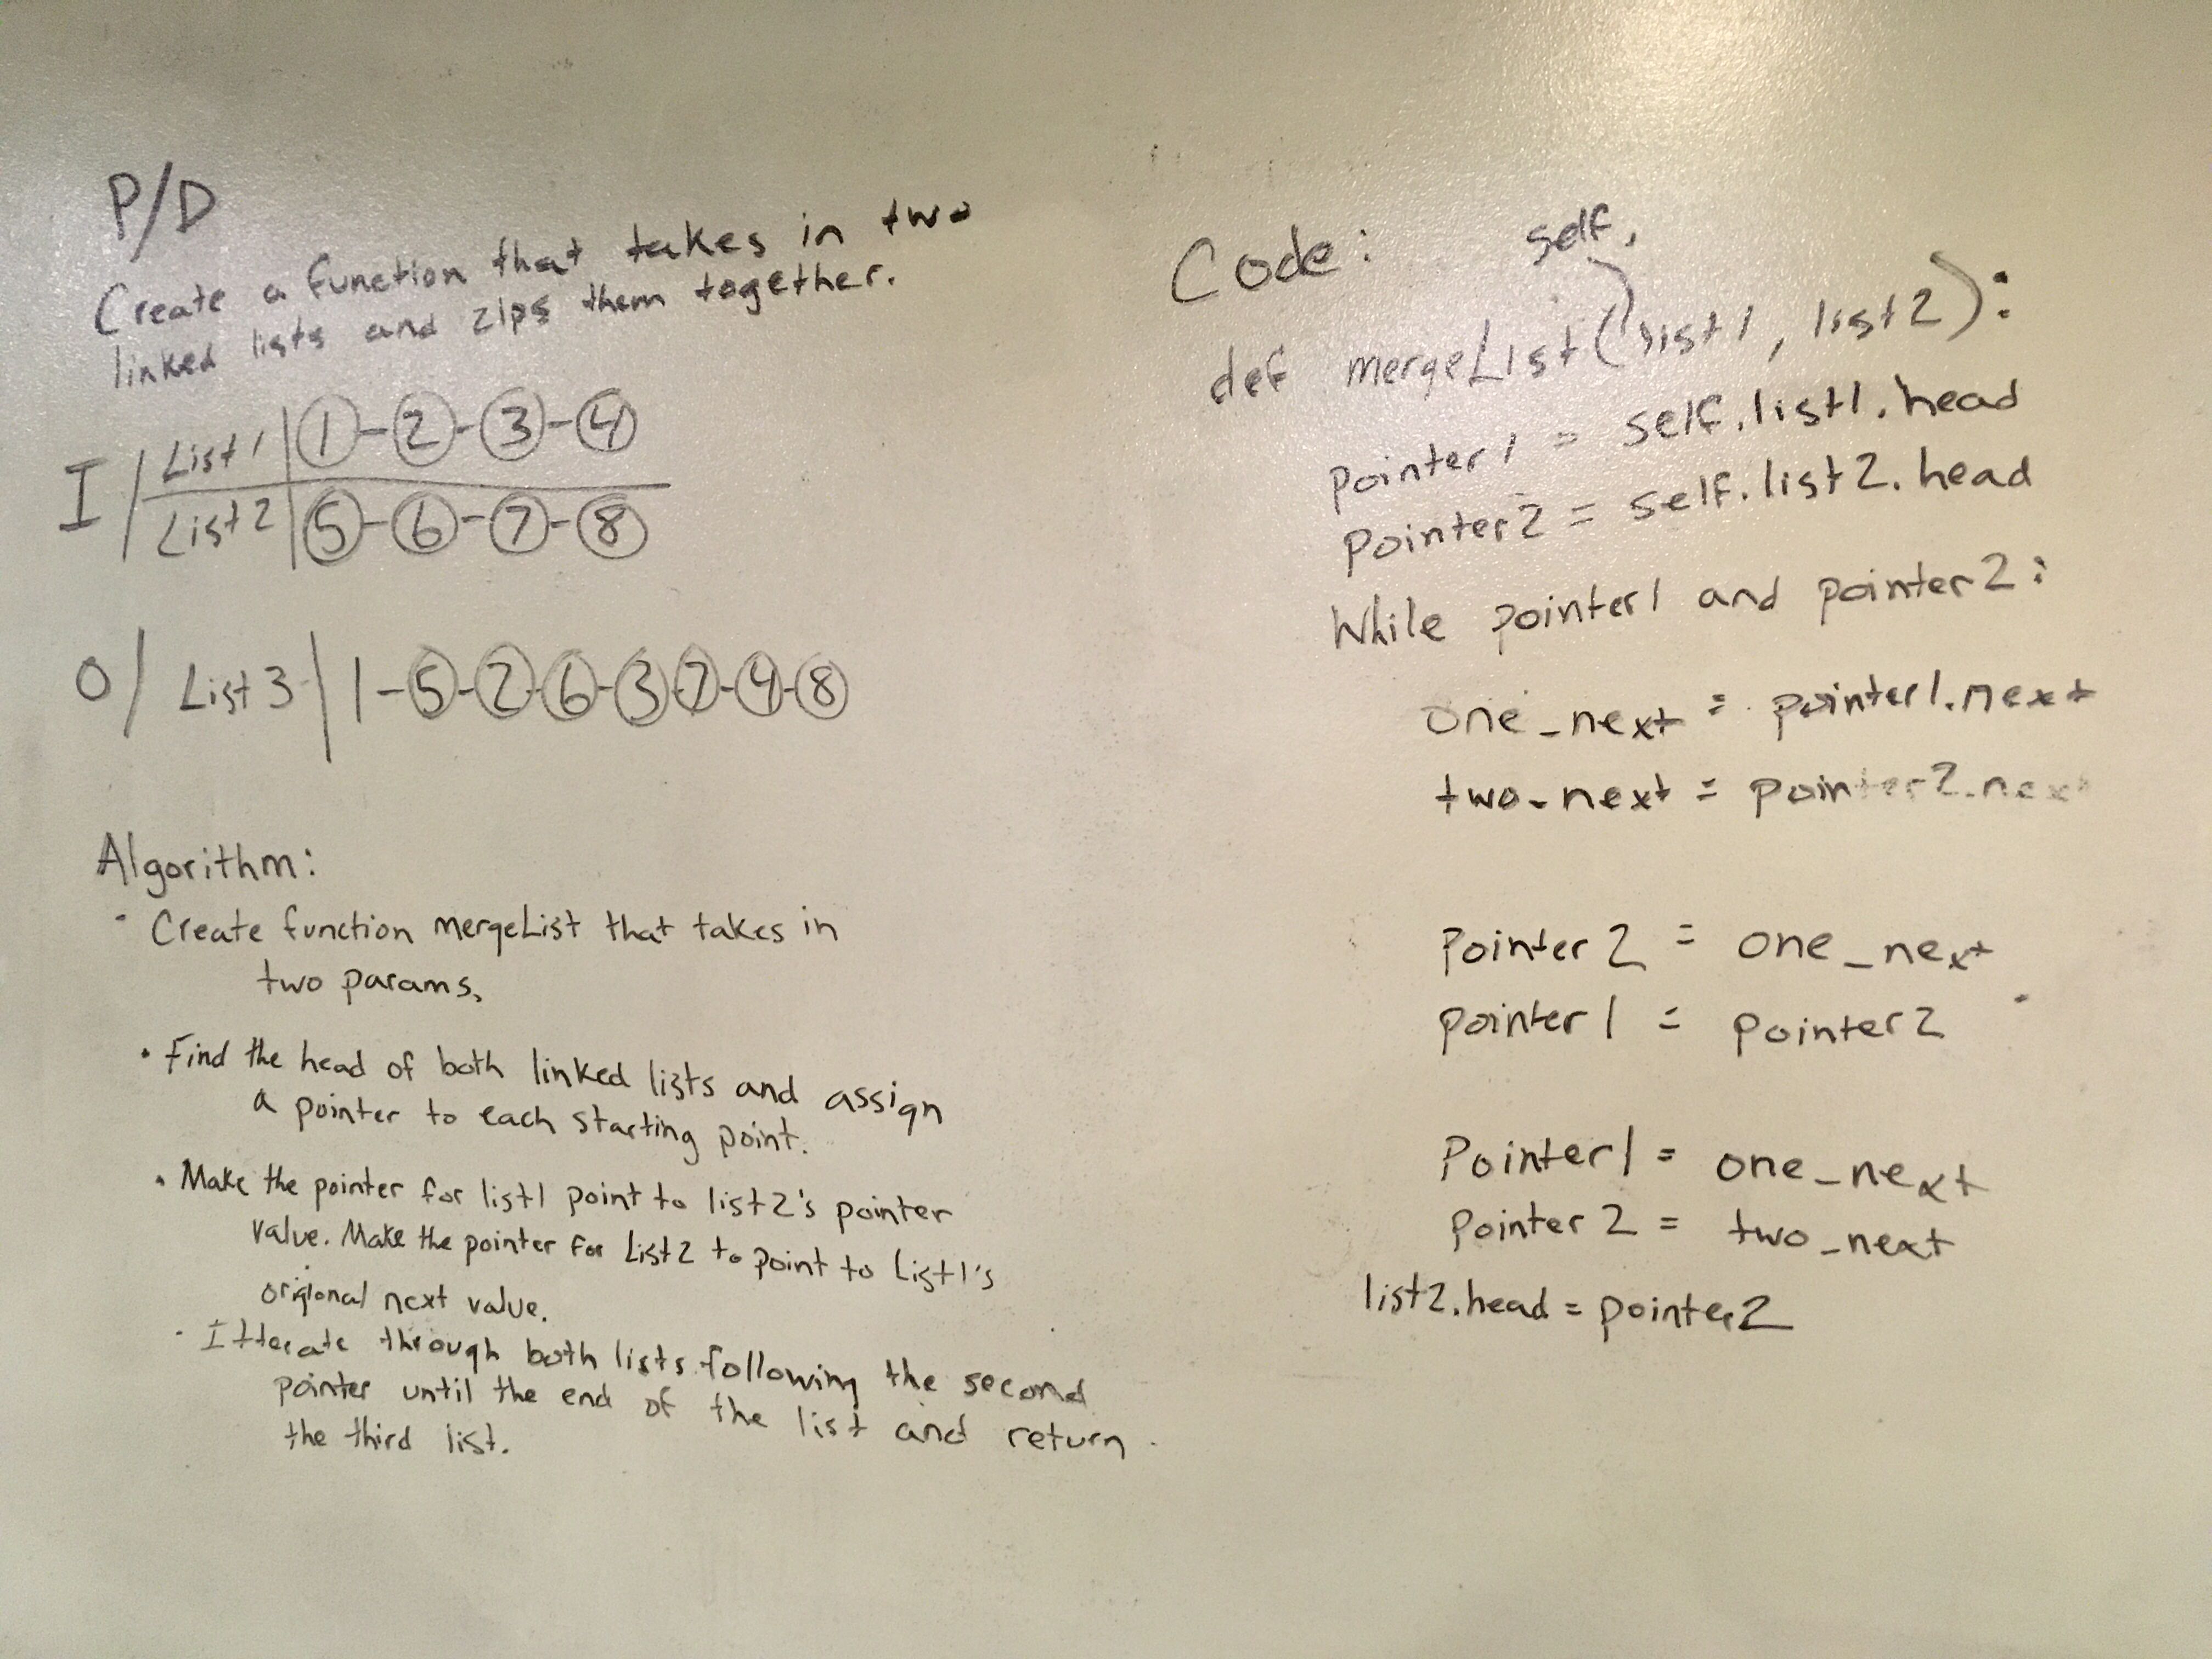 P/D
Create a function that takes in two
linked lists and zips them together.
I / List 1 | 1-2-3-4
List 2 | 5-6-7-8
O/ List 3 | 1-5-2-6-3-7-4-8
Algorithm:
· Create function mergeList that takes in
two params.
· Find the head of both linked lists and assign
a pointer to each starting point.
· Make the pointer for list1 point to list2's pointer
value. Make the pointer for List2 to point to List1's
origional next value.
· Itterate through both lists following the second
pointer until the end of the list and return
the third list.
Code:
self,
def mergeList(list1, list2):
pointer1 = self.list1.head
pointer2 = self.list2.head
While pointer1 and pointer2:
one_next = pointer1.next
two_next = pointer2.next
pointer2 = one_next
pointer1 = pointer2
Pointer1 = one_next
Pointer2 = two_next
list2.head = pointer2